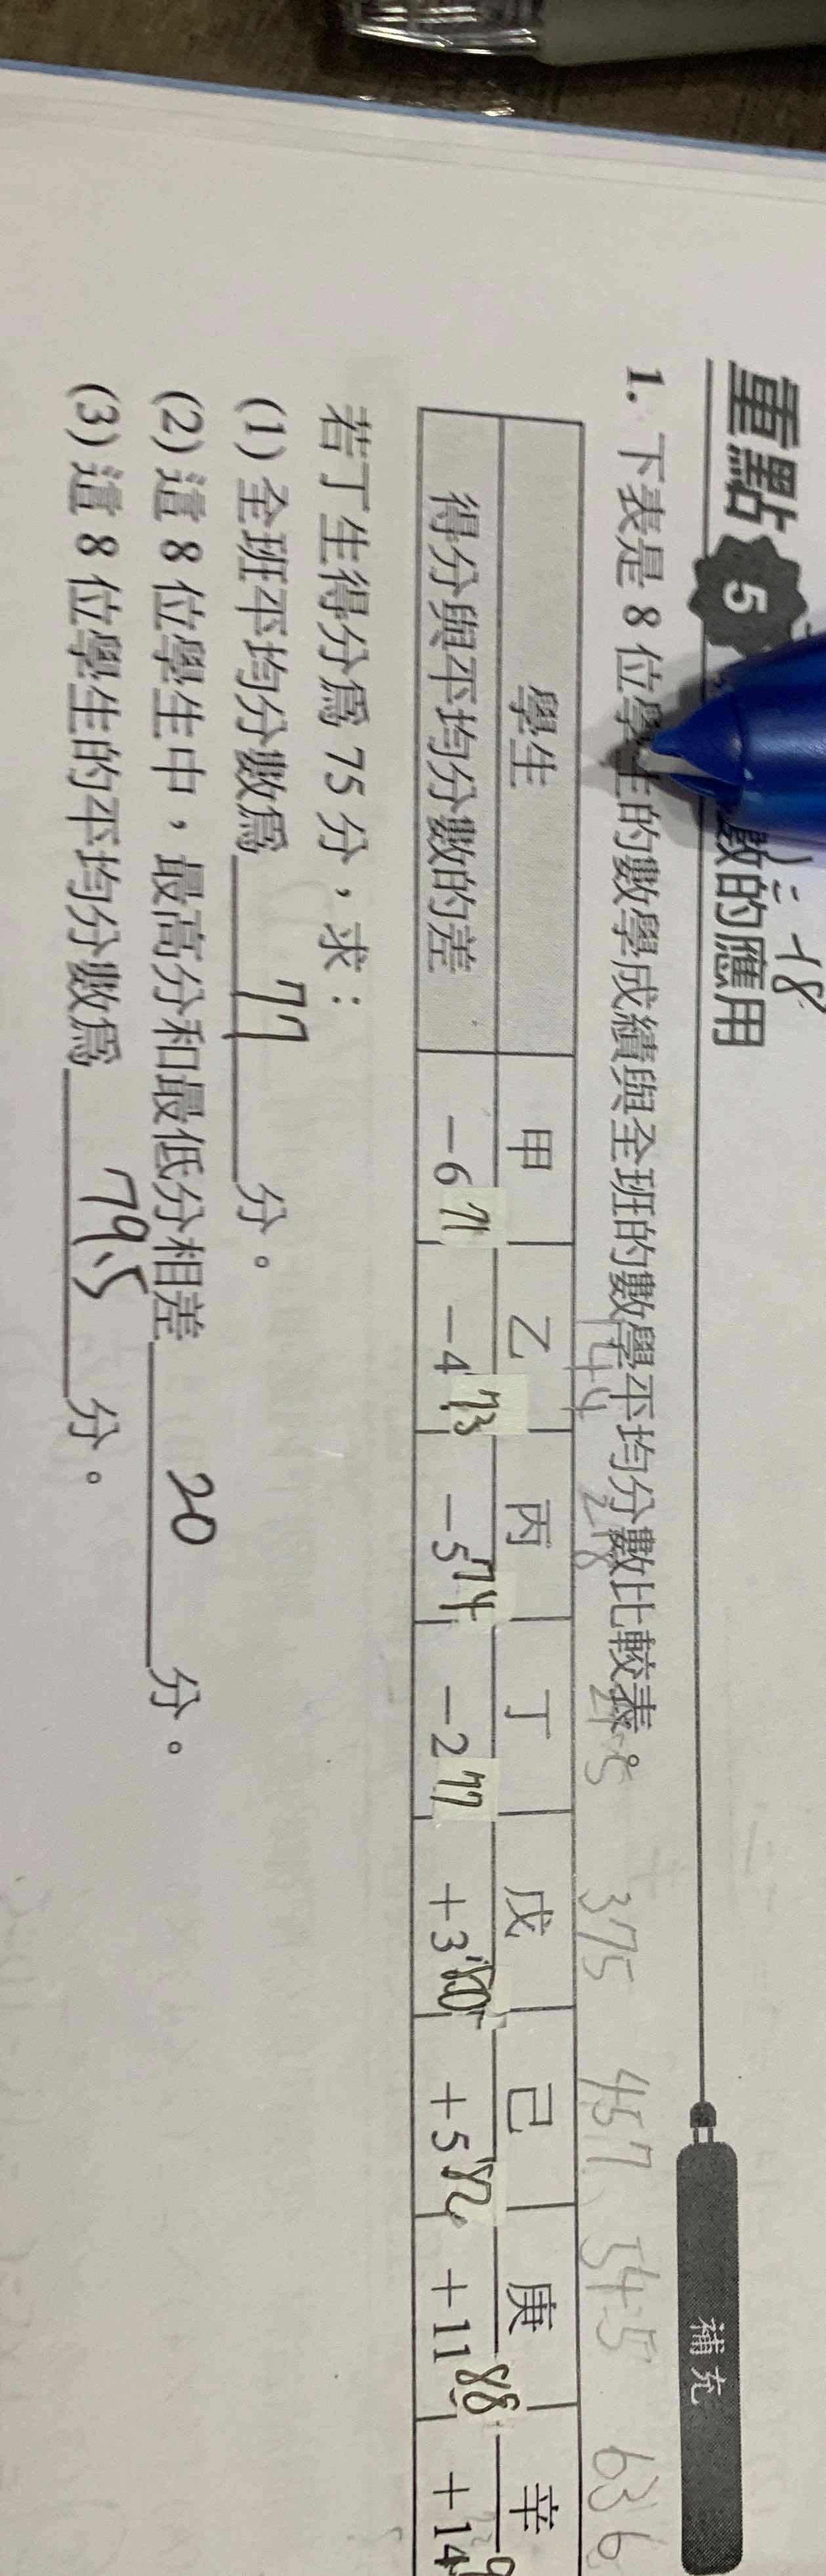 重點 5 數的應用
1. 下表是 8 位學生的數學成績與全班的數學平均分數比較表。
144 218 375 457 545 636
學生 甲 乙 丙 丁 戊 己 庚 辛
得分與平均分數的差 -6 71 -4 73 -5 74 -2 77 +3 80 +5 82 +11 88 +14
若丁生得分為 75 分，求：
(1) 全班平均分數為 77 分。
(2) 這 8 位學生中，最高分和最低分相差 20 分。
(3) 這 8 位學生的平均分數為 79.5 分。
補充